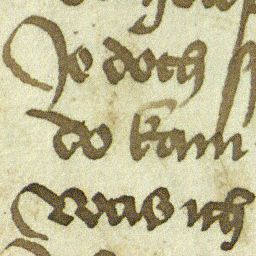 Je doch
do kam
Was ich